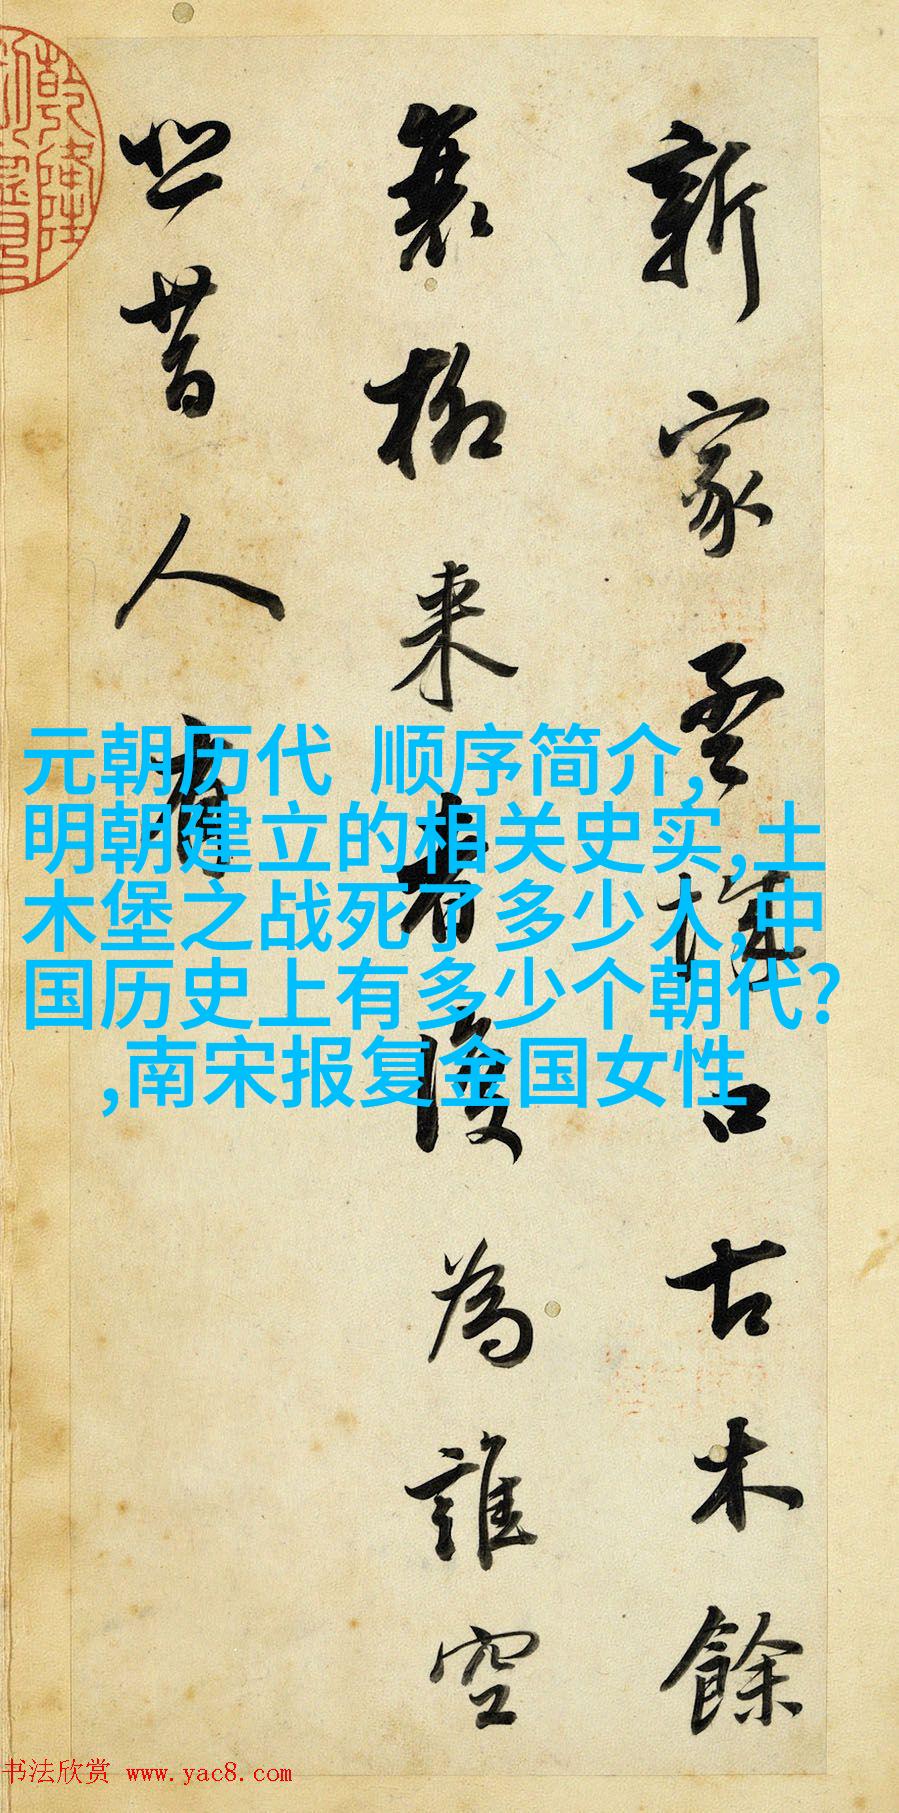 新家孟城口古木餘
衰柳来者復為誰空
悲昔人有
乾隆
元朝历代 顺序简介,
明朝建立的相关史实,土
木堡之战死了多少人,中
国历史上有多少个朝代?
,南宋报复金国女性
书法欣赏 www.yac8.com